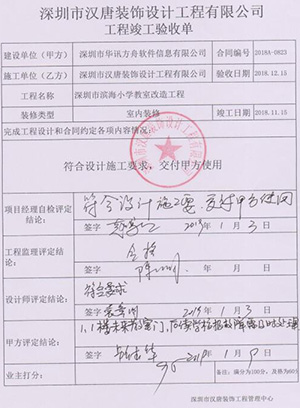 深圳市汉唐装饰设计工程有限公司
工程竣工验收单
建设单位（甲方） 深圳市华讯方舟软件信息有限公司 合同编号 2018A-0823
施工单位（乙方） 深圳市汉唐装饰设计工程有限公司 验收日期 2018.12.15
工程名称 深圳市滨海小学教室改造工程
装修类型 室内装修 竣工日期 2018.11.15
完成工程设计和合同约定各项内容情况：
深圳市汉唐装饰设计工程有限公司
符合设计施工要求，交付甲方使用
项目经理自检评定结论：
符合设计施工要求 交付甲方使用
签字 2019 年 1 月 3 日
工程监理评定结论：
合格
签字 年 月 日
设计师评定结论：
符合要求
签字 2019 年 1 月 3 日
甲方评定结论：
签字 2019 年 1 月 日
业主打分： 96 备注：满分为100分，及格为60分
深圳市汉唐装饰工程管理中心